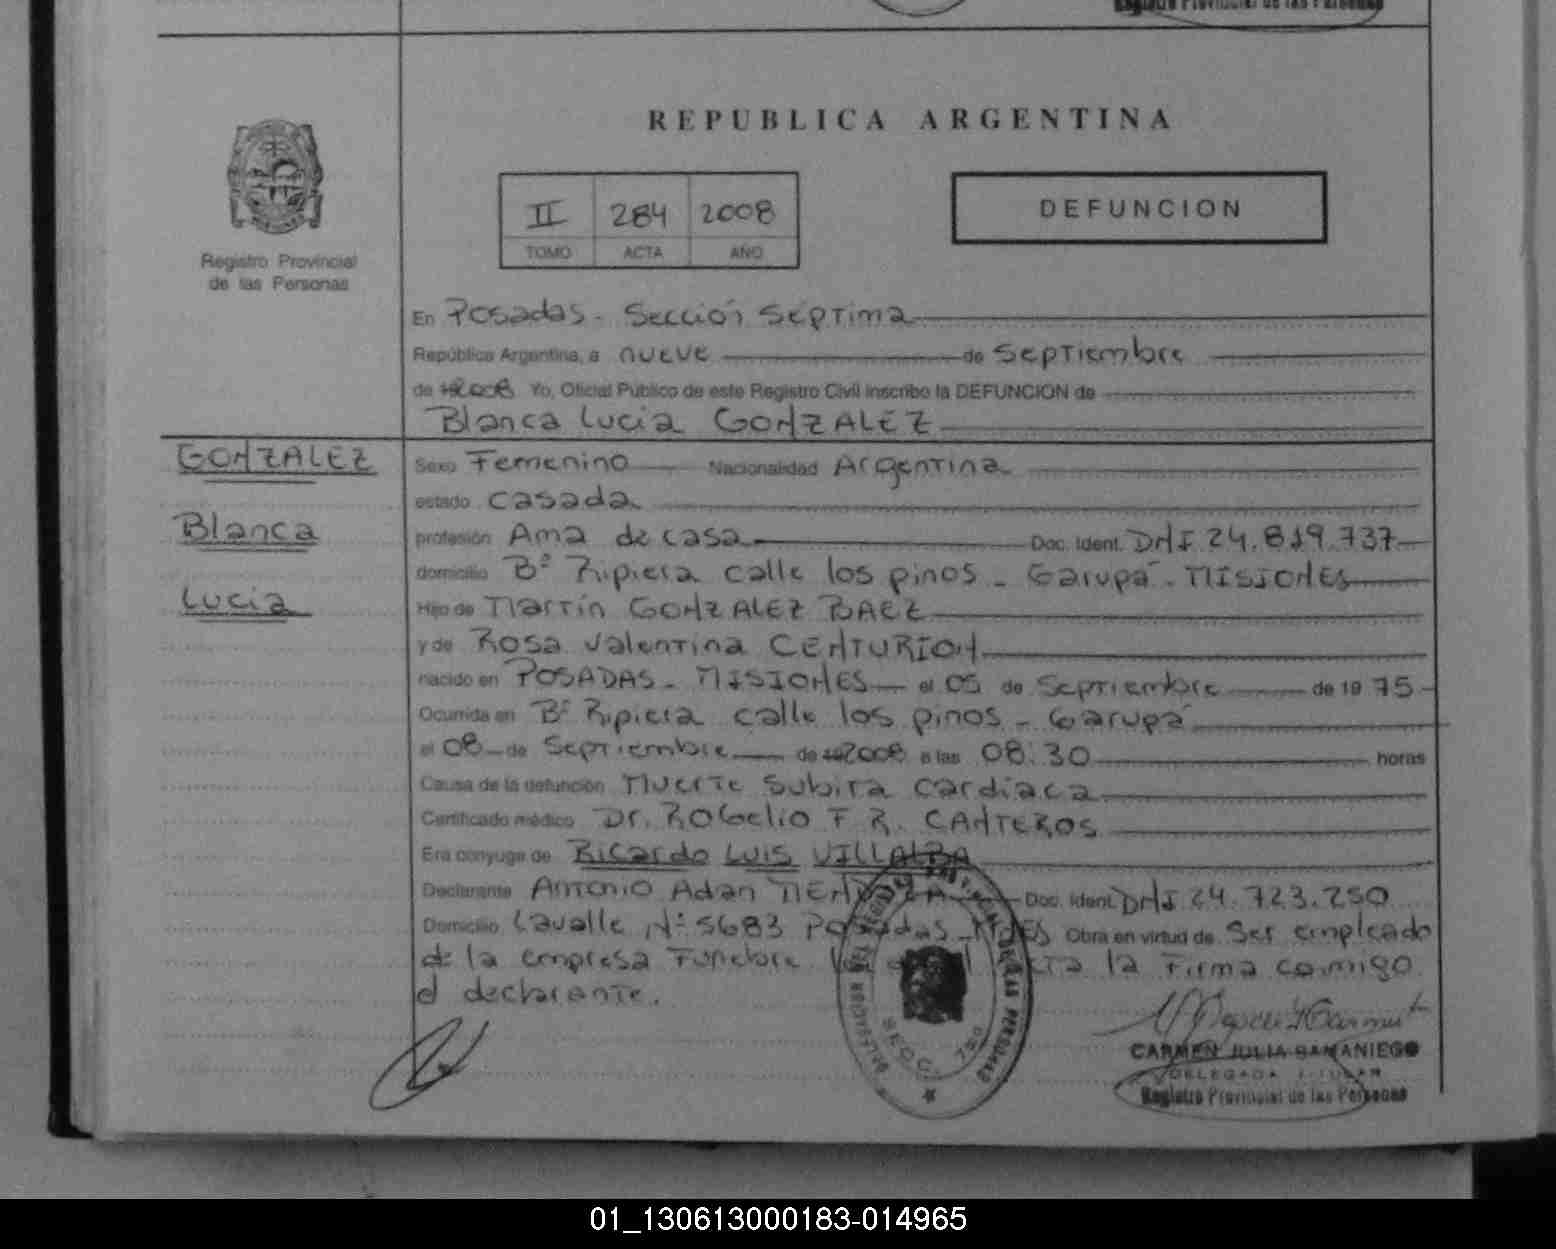 Registro Provincial de las Personas
REPUBLICA ARGENTINA
II 284 2008
TOMO ACTA AÑO
DEFUNCION
Registro Provincial
de las Personas
En Posadas - Sección Séptima
República Argentina, a nueve de Septiembre
de 2008 Yo, Oficial Público de este Registro Civil inscribo la DEFUNCION de
Blanca Lucia GONZALEZ
GONZALEZ
Blanca
Lucia
Sexo Femenino Nacionalidad Argentina
estado casada
profesión Ama de casa Doc. Ident. DNI 24.819.737
domicilio Bº Ripiera calle los pinos - Garupá - MISIONES
Hijo de Martín GONZALEZ BAEZ
y de Rosa Valentina CENTURION
nacido en POSADAS - MISIONES el 05 de Septiembre de 19 75
Ocurrida en Bº Ripiera calle los pinos - Garupá
el 08 de Septiembre de 2008 a las 08:30 horas
Causa de la defunción Muerte Subita Cardíaca
Certificado médico Dr. ROGELIO F R. CANTEROS
Era conyuge de Ricardo Luis VILLALBA
Declarante Antonio Adan Doc. Ident. DNI 24.723.250
Domicilio Lavalle Nº 5683 Posadas - Obra en virtud de Ser empleado
de la empresa Funebre la Firma conmigo
el declarante.
CARMEN JULIA SAMANIEGO
DELEGADA TITULAR
Registro Provincial de las Personas
01_130613000183-014965